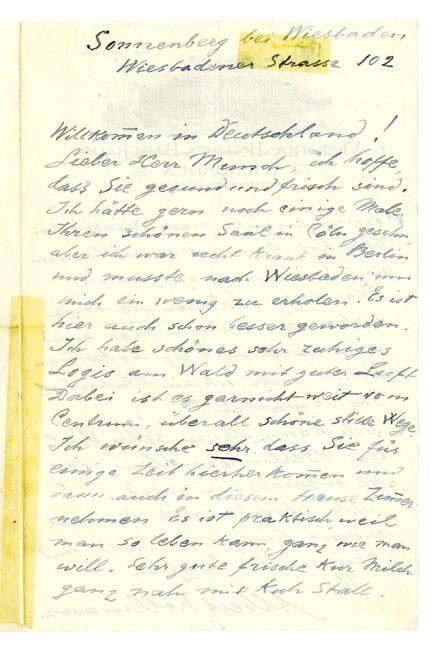 Sonnenberg bei Wiesbaden
Wiesbadener Strasse 102
Willkom̄en in Deutschland!
Lieber Herr Munch, ich hoffe,
dass Sie gesund und frisch sind.
Ich hätte gern noch einige Male
Ihren schönen Saal in Cöln gesehn
aber ich war recht krank in Berlin
und musste nach Wiesbaden um
mich ein wenig zu erholen. Es ist
hier auch schon besser geworden.
Ich habe schönes sehr ruhiges
Logis am Wald mit guter Luft
Dabei ist es garnicht weit vom
Centrum, überall schöne stille Wege.
Ich wünsche sehr dass Sie für
einige Zeit hierherkom̄en und
dann auch in diesem Hause Zim̄er
nehmen Es ist praktisch weil
man so leben kann ganz wie man
will. Sehr gute frische Kur Milch
ganz nah mit Kuh Stall.